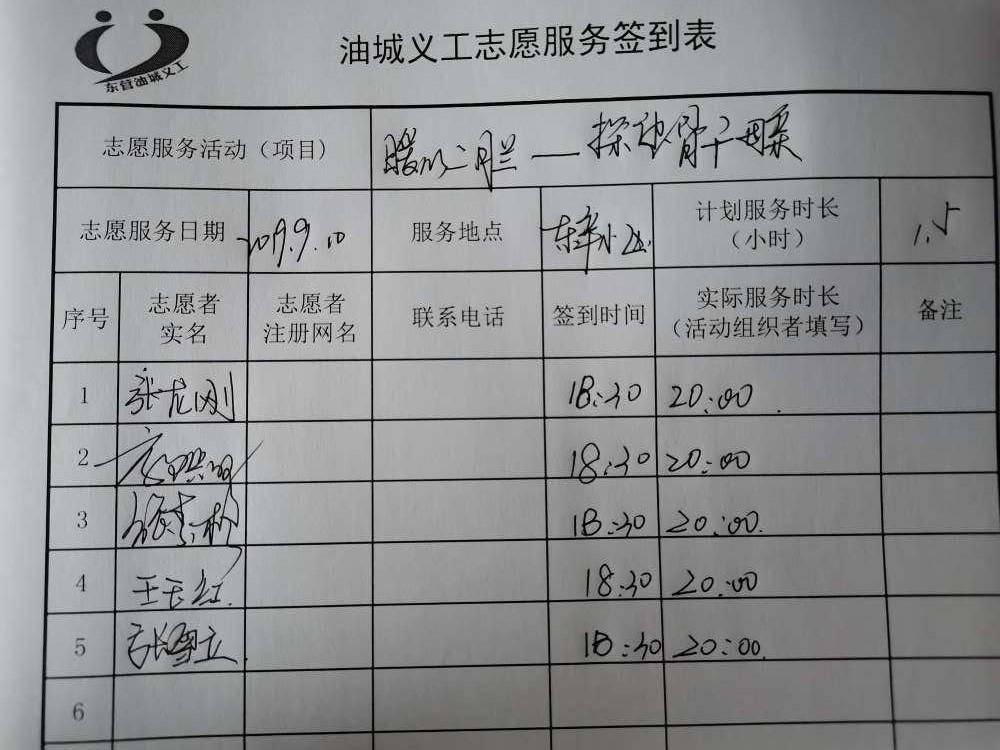 东营油城义工
油城义工志愿服务签到表
志愿服务活动（项目） 探望骨干母亲
志愿服务日期 2019.9.10 服务地点 计划服务时长（小时） 1.5
序号 志愿者实名 志愿者注册网名 联系电话 签到时间 实际服务时长（活动组织者填写） 备注
1 张龙刚 18:30 20:00
2 18:30 20:00
3 18:30 20:00.
4 王玉红. 18:30 20:00
5 张雪立 18:30 20:00.
6